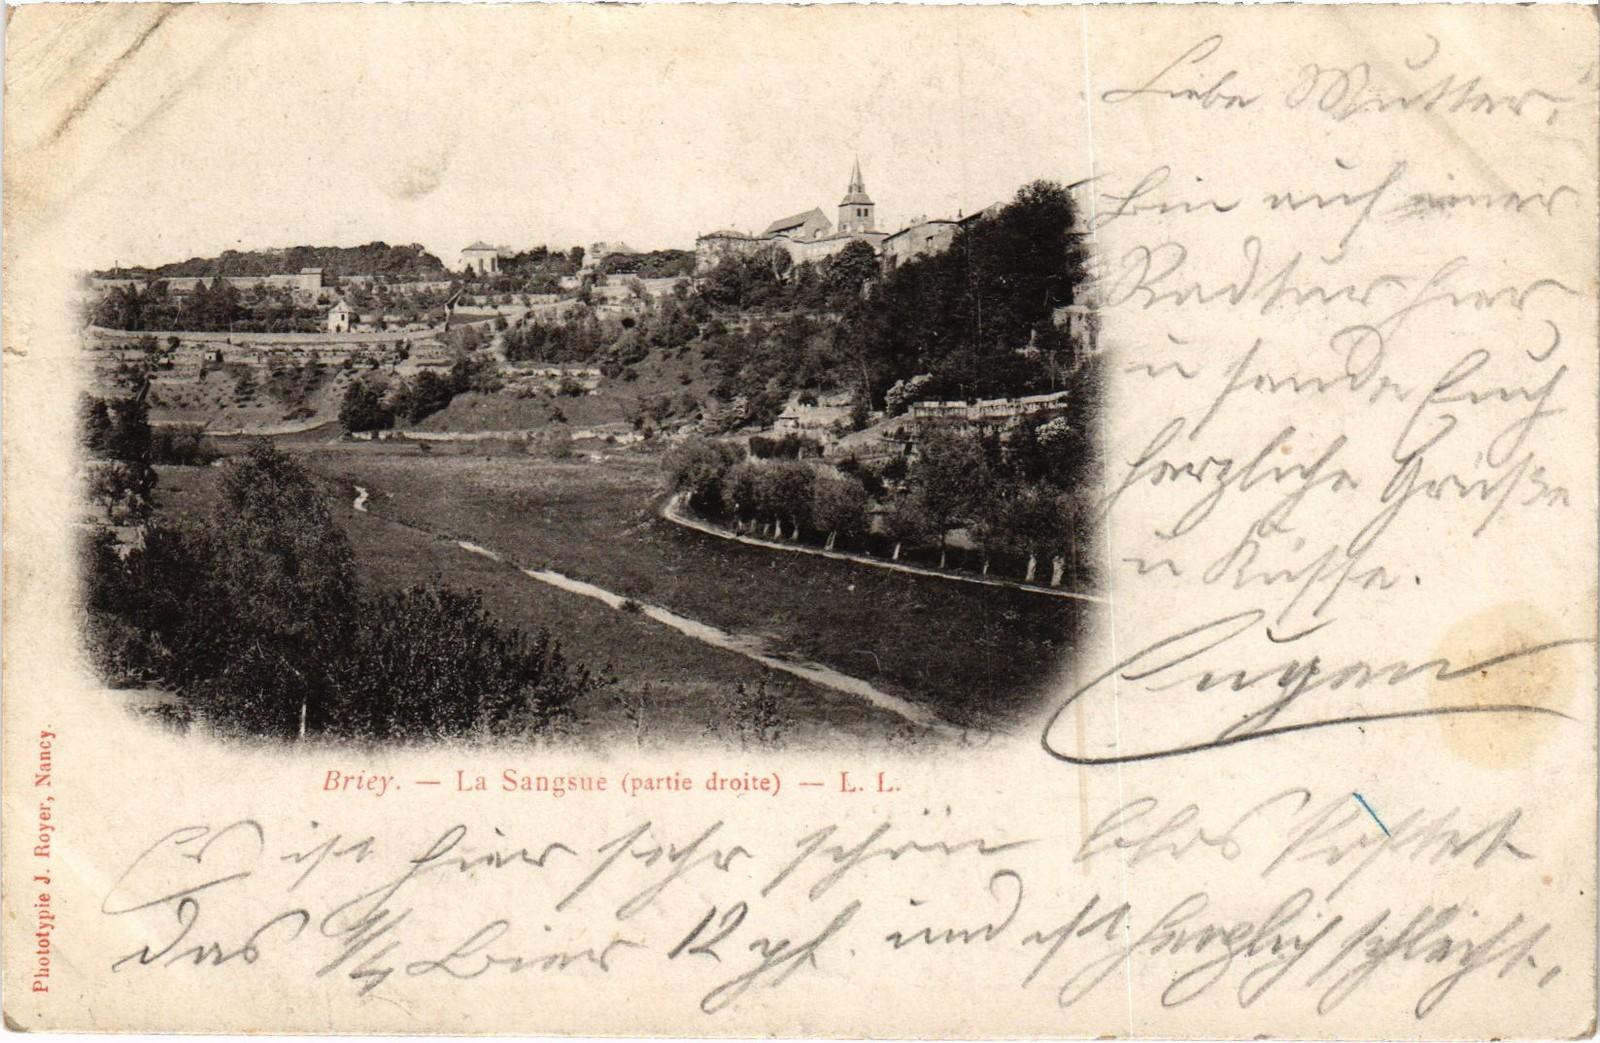 Liebe Mutter,
Bin auf einer
Radtur hier
u sende Euch
herzliche Grüße
u Küsse.
Eugen
Briey. — La Sangsue (partie droite) — L. L.
Es ist hier sehr schön blos kostet
das 1/4 Bier 12 pf. und ist herzlich schlecht.,
Phototypie J. Royer, Nancy.